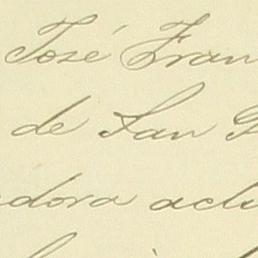 José Fran
de San
dora actu